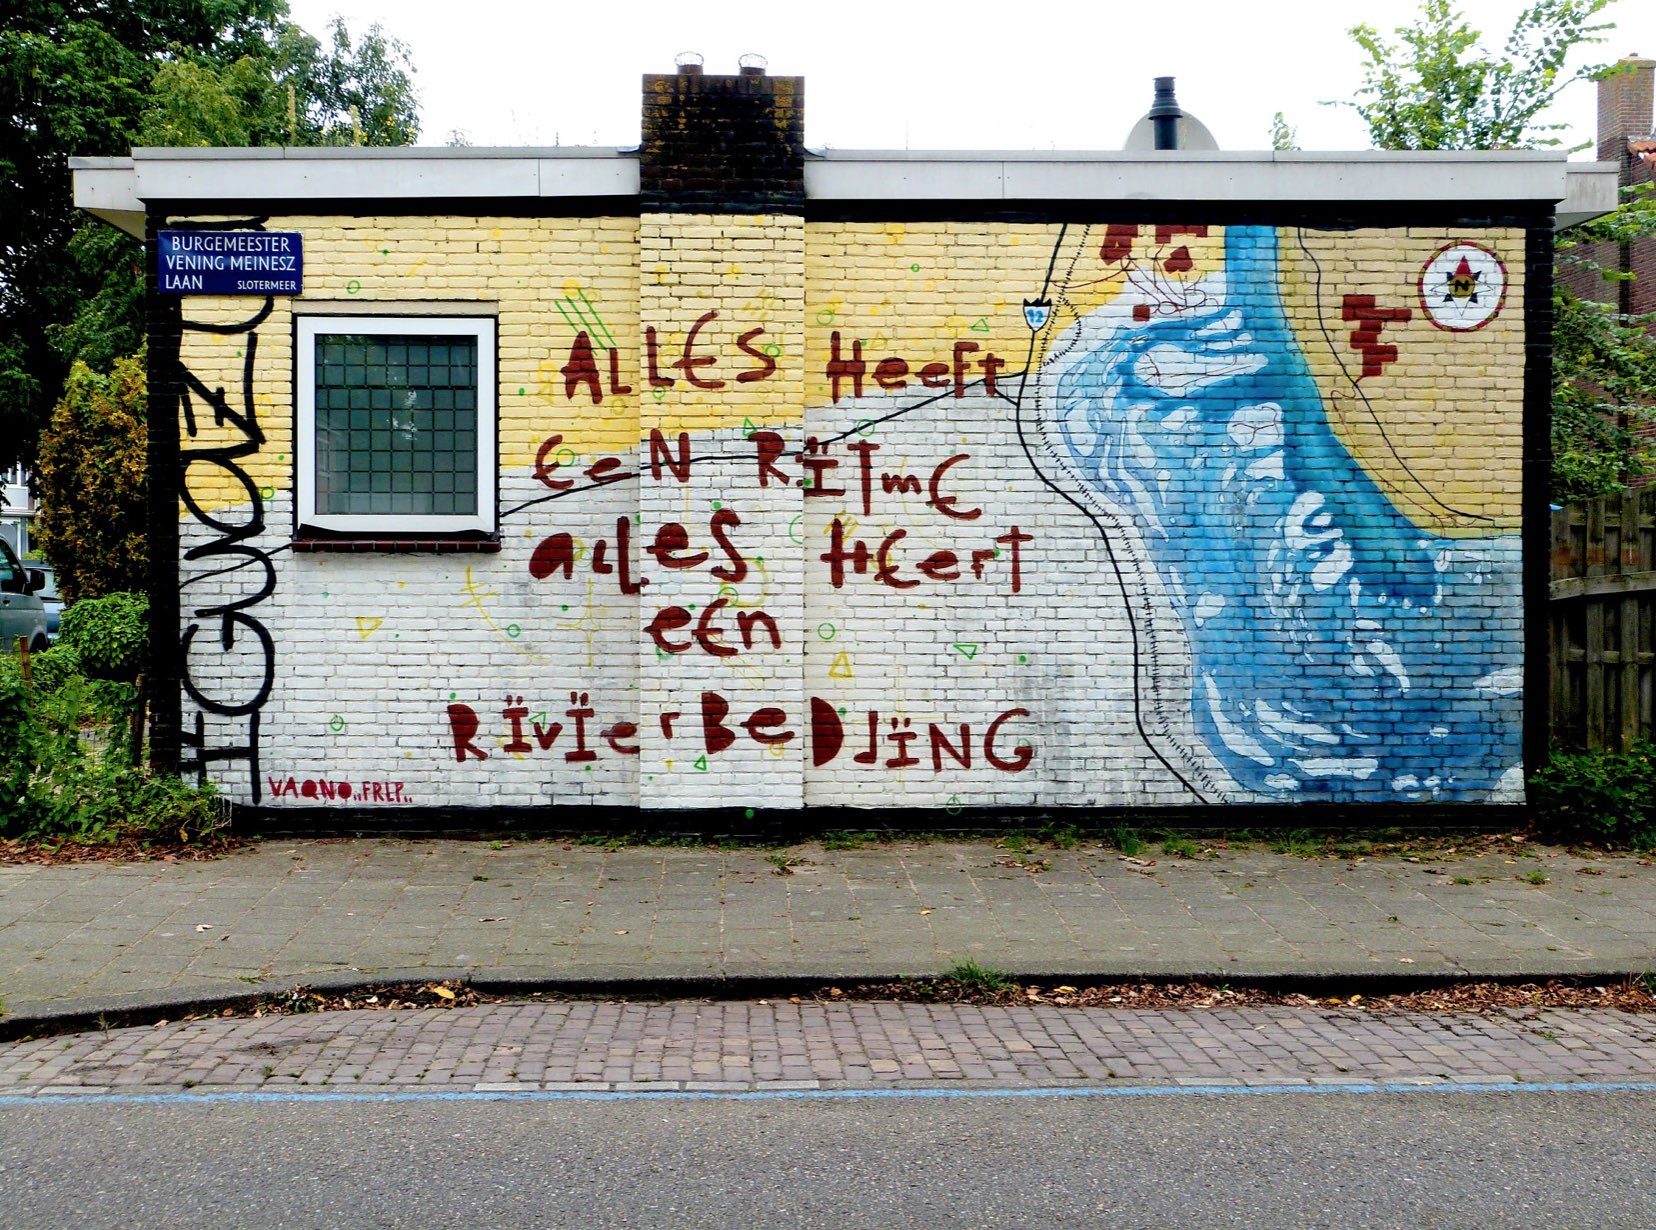 BURGEMEESTER
VENING MEINESZ
LAAN SLOTERMEER
ALLES HeeFT
EeN RÏTmE
aLLeS HEerT
eEn
RÏVÏerBeDdÏNG
12
N
VAQNO..FRLP..